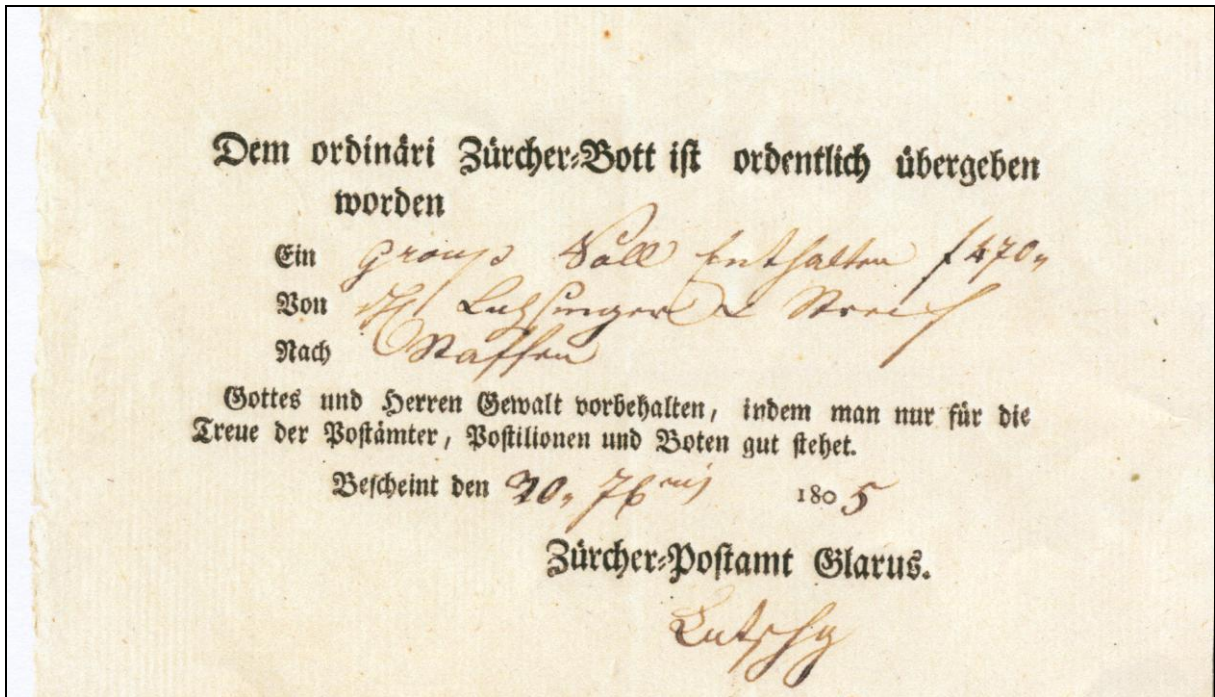 Dem ordinäri Zürcher-Bott ist ordentlich übergeben
worden
Ein Group Soll Enthalten f 470
Von Streiff
Nach Staffen
Gottes und Herren Gewalt vorbehalten, indem man nur für die
Treue der Postämter, Postilionen und Boten gut stehet.
Bescheint den 20, 7bris 1805
Zürcher-Postamt Glarus.